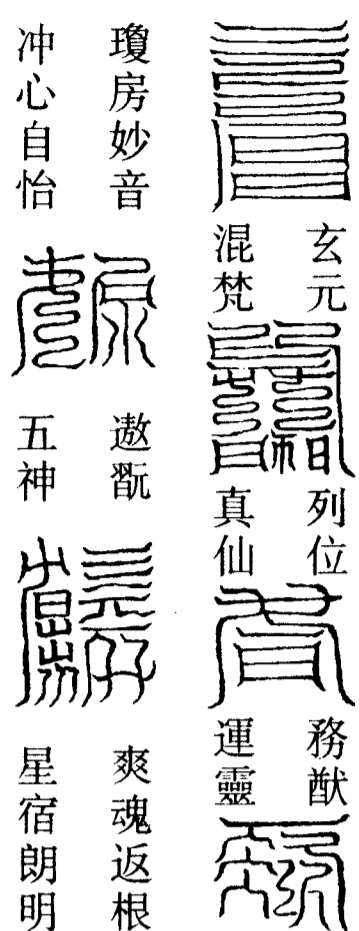 玄元
混梵
列位
真仙
務猷
運靈
瓊房妙音
冲心自怡
遨翫
五神
爽魂返根
星宿朗明